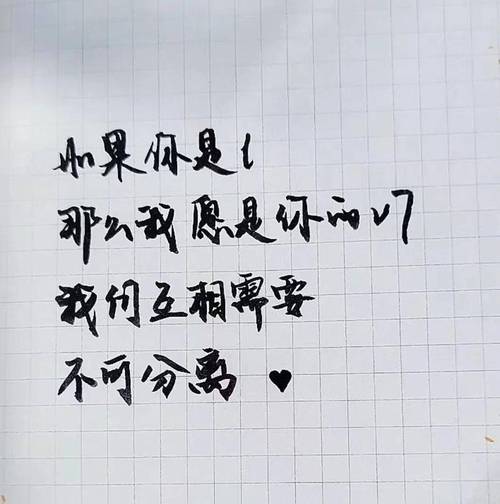 如果你是1
那么我愿是你的√7
我们互相需要
不可分离♥